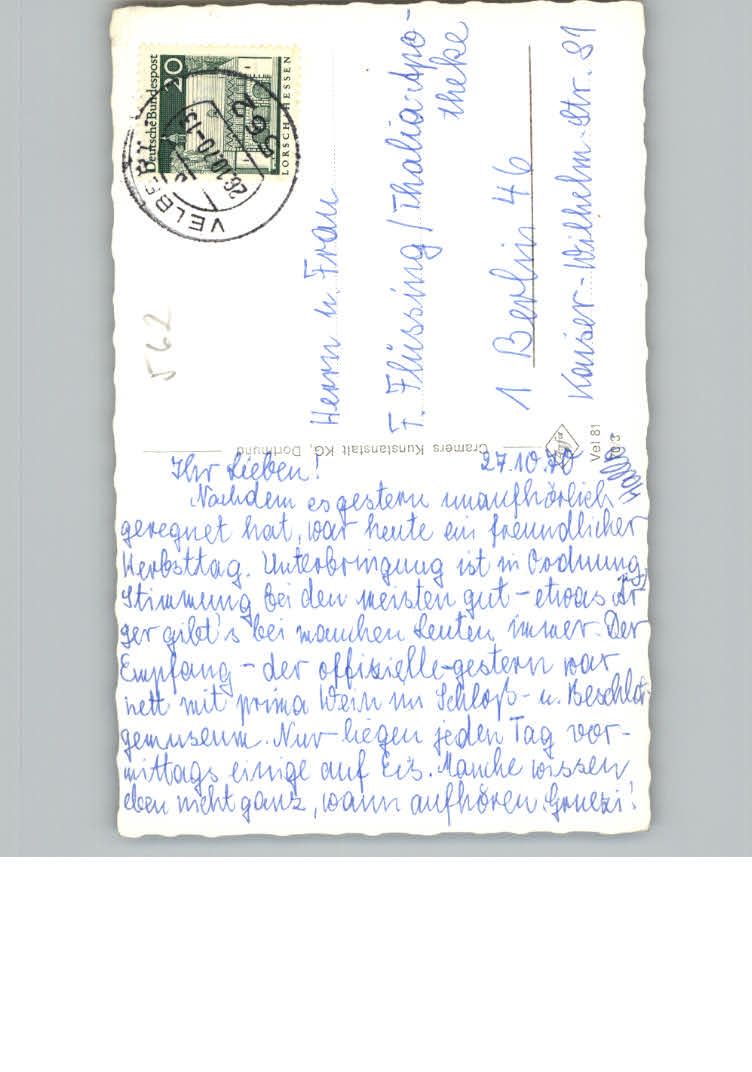 Ihr Lieben! 27.10.70
Nachdem es gestern unaufhörlich
geregnet hat, war heute ein freundlicher
Herbsttag. Unterbringung ist in Ordnung,
Stimmung bei den meisten gut - etwas Är-
ger gibt's bei manchen Leuten immer. Der
Empfang - der offizielle - gestern war
nett mit prima Wein im Schloß- u. Beschlä-
gemuseum. Nur liegen jeden Tag vor-
mittags einige auf Eis. Manche wissen
eben nicht ganz, wann aufhören. Gruezi!
Herrn u. Frau
T. Flüssing / Thalia-Apo-
theke
1 Berlin 46
Kaiser-Wilhelm-Str. 81
Deutsche Bundespost
20
LORSCH HESSEN
562
VELBERT
562
Cramers Kunstanstalt KG, Dortmund
Vel 81